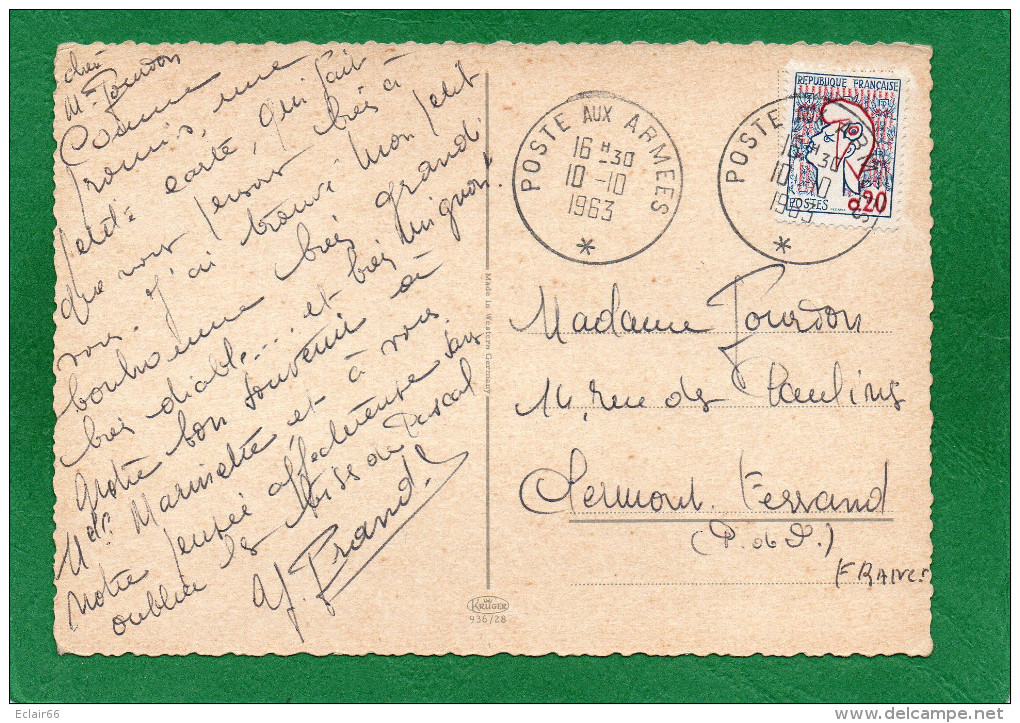 chère
Mme Jourdon
Comme
promis, une
petite carte, qui fait
que vous penser très à
vous. J'ai trouvé mon petit
bonhomme très grandi
très diable... et très mignon!
Notre bon souvenir à
Melle Marinette et à vous
notre pensée affectueuse sans
oublier les bises de Pascal
Y. Prand
POSTE AUX ARMEES
16 H 30
10 - 10
1963
*
POSTE AUX ARMEES
16 H 30
10 - 10
1963
*
REPUBLIQUE FRANÇAISE
0,20
POSTES
Made in Western Germany
Madame Jourdon
14, rue des Paulines
Clermont Ferrand
(P. de D.)
FRANCE
KRÜGER
936/28
Eclair66
delcampe.net